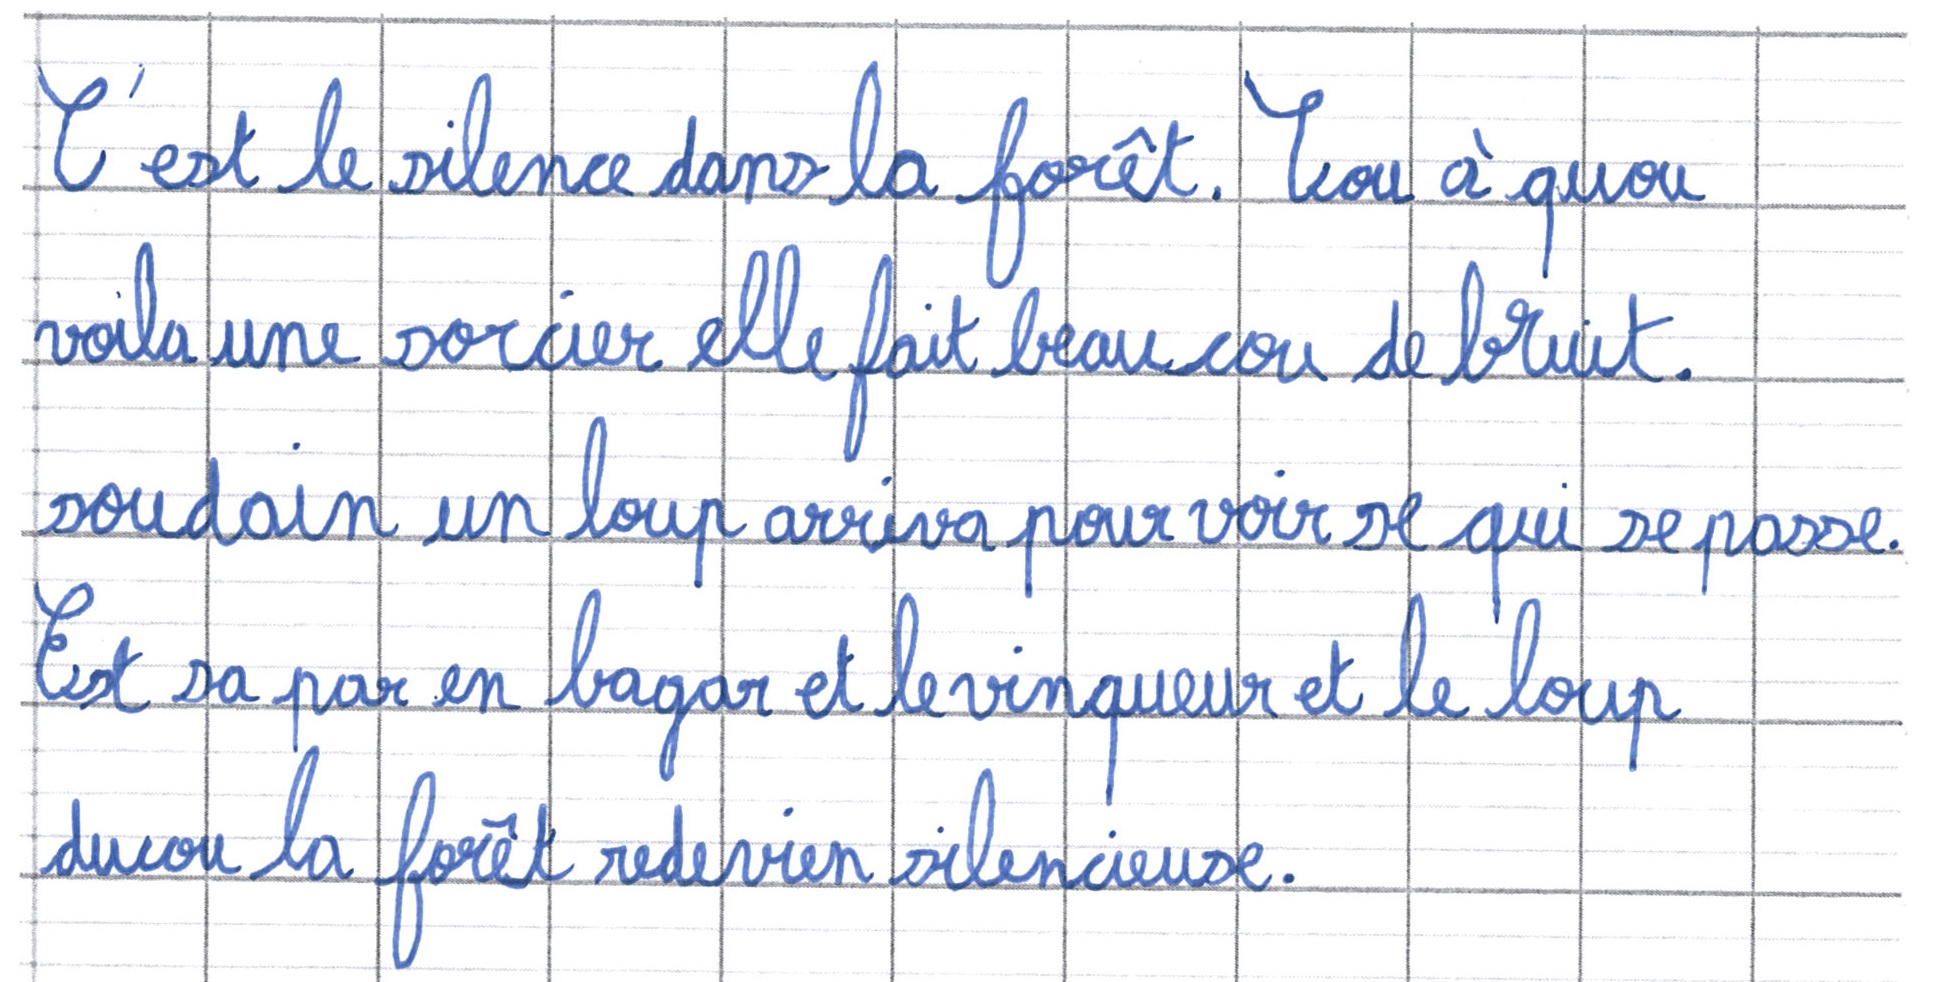 C'est le silence dans la forêt. Tou à quou
voila une sorcier elle fait beaucou de bruit.
soudain un loup arriva pour voir se qui se passe.
Est sa par en bagar et le vinqueur et le loup
ducou la forêt redevien silencieuse.